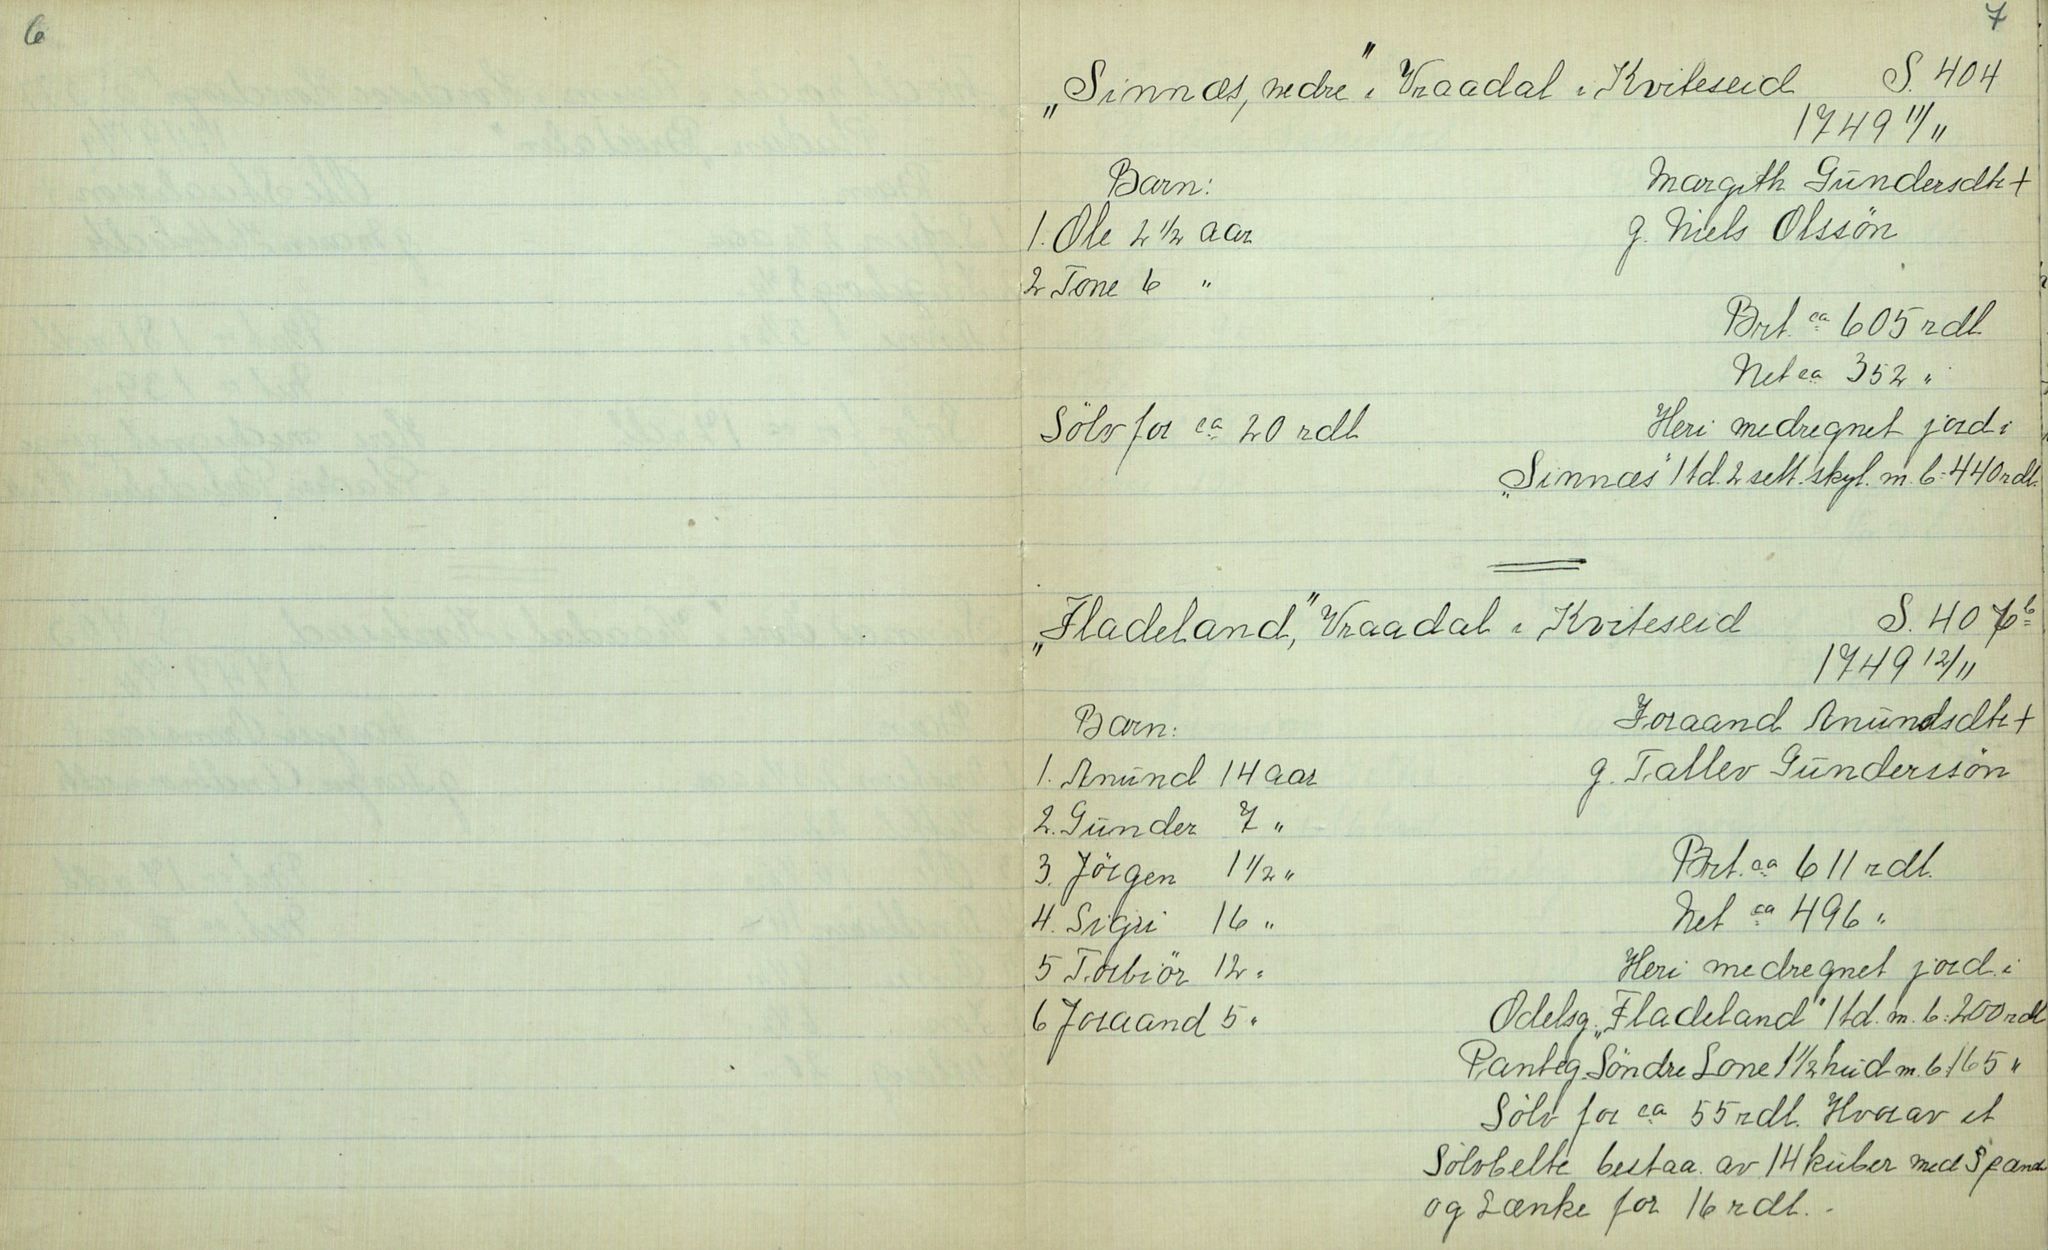 6
7
„Sinnæs, nedre" i Vraadal i Kviteseid S. 404
1749 11/11
Barn: Margith Gundersdtr +
1. Ole 2 1/2 aar g. Niels Olssön
2 Tone 6 "
Brt. ca 605 rdl
Net ca 352 "
Sölv for ca 20 rdl Heri medregnet jord i
„Sinnæs" 1 td. 2 sett. skyl. m. b. 440 rdl.
„Fladeland," Vraadal i Kviteseid S. 407 b
1749 12/11
Barn: Joraand Anundsdtr +
1. Anund 14 aar g. Tallev Gunderssön
2. Gunder 7 "
3. Jörgen 1 1/2 " Brt. ca 611 rdl.
4. Sigri 16 " Net ca 496 "
5 Torbiör 12 " Heri medregnet jord i
6 Joraand 5 " Odelsg. „Fladeland" 1 td. m. b. 200 rdl
Panteg. Söndre Lone 1 1/2 hud m. b. 165 "
Sölv for ca 55 rdl. Hvorav et
Sölvbelte bestaa. av 14 kuber med Spand
og Lænke for 16 rdl. -